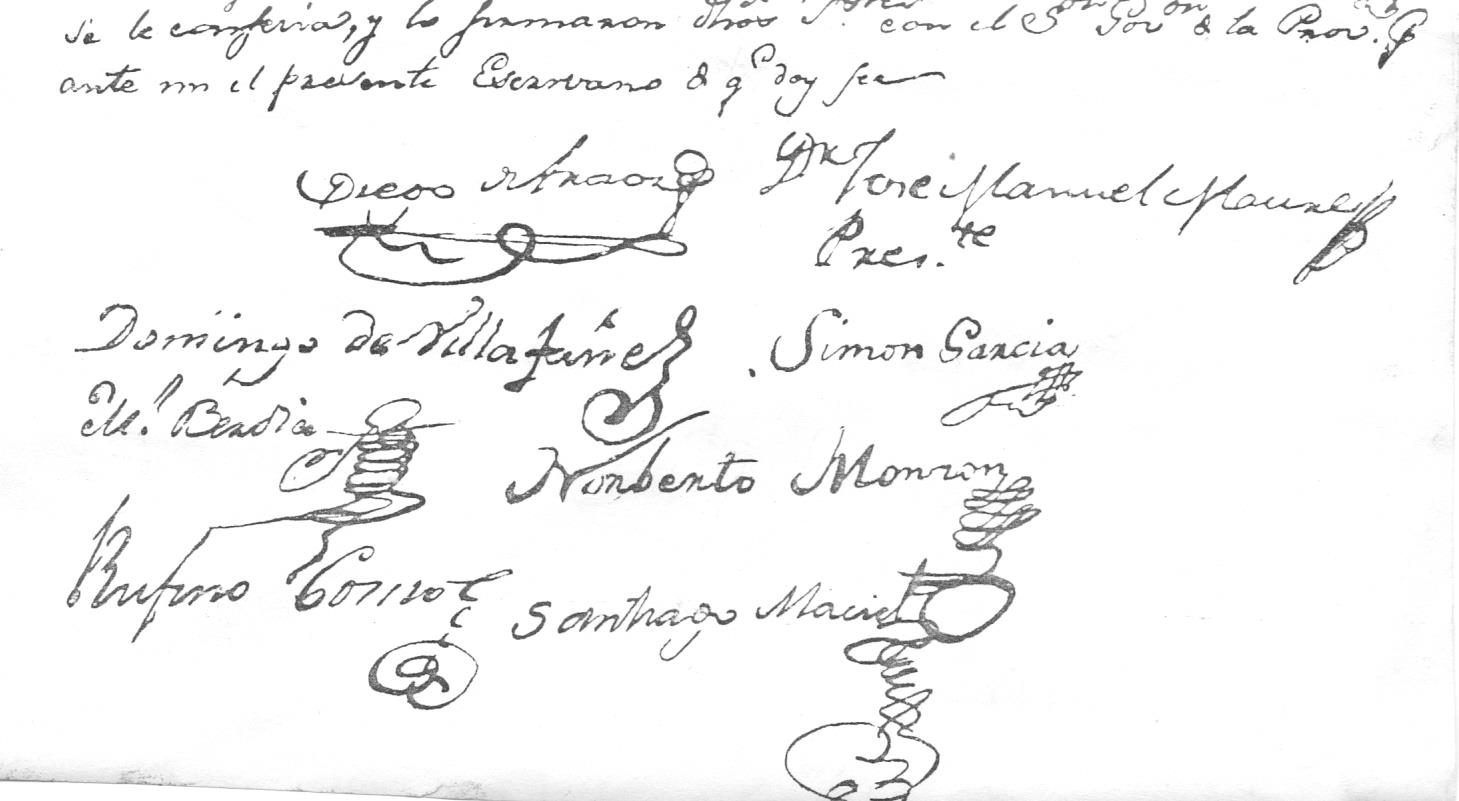 se le conferia, y lo firmaron dhos S.res con el S.or Gov.or de la Prov.a p.r
ante mi el presente Escrivano de q.e doy fee
Diego de Araoz D.r Jose Manuel Moure
Pres.te
Domingo de Villafañe Simon Garcia
M.l Berdia
Norberto Monzon
Rufino Santiago Maciel